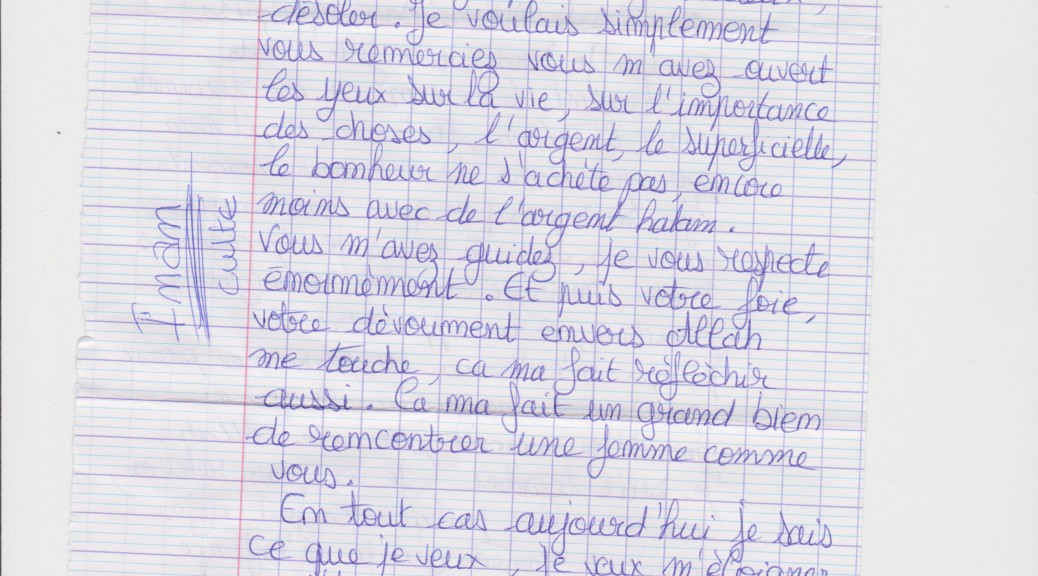 désoler. Je voulais simplement
vous remercies vous m'avez ouvert
les yeux sur la vie, sur l'importance
des choses, l'argent, le superficielle,
le bonheur ne s'achéte pas, encore
moins avec de l'argent haram.
Vous m'avez guidez, je vous respecte
énormément. Et puis votre foie,
votre dévoument envers Allah
me touche, ca ma fait réfléchir
aussi. Ca ma fait un grand bien
de rencontrer une femme comme
vous.
En tout cas aujourd'hui je sais
ce que je veux, Je veux m'éloigner
Iman
culte